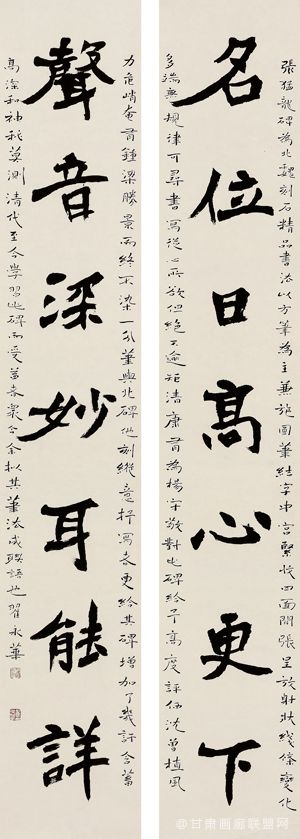 張猛龍碑為北魏刻石精品書法以方筆為主兼施圓筆結字中宮緊收四面開張呈放射狀线條變化
名位日高心更下
多端無規律可尋書寫從心所欲但絕不逾矩清康有為楊守敬對此碑給予高度評価沈曾植風
力危峭奄有鍾梁勝景而終不染一分筆與北碑他刻縱意抒寫者更給其碑增加了幾許含蓄
聲音深妙耳能詳
高深和神秘莫測清代至今學習此碑而受益者衆今余拟其筆法成聯語也翟永華
@甘肃画廊联盟网